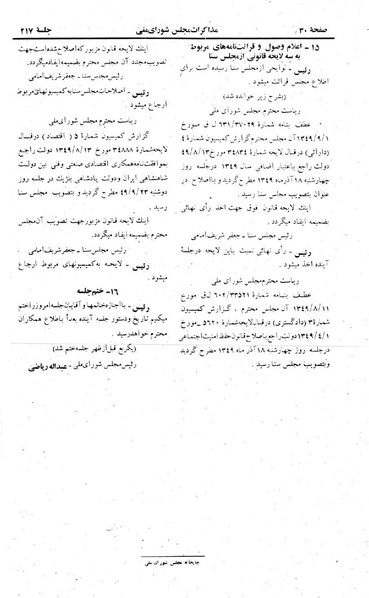 صفحهٔ ۳۰
مذاکرات مجلس شورای ملی
جلسهٔ ۲۱۷
۱۵ - اعلام وصول و قرائت نامه‌های مربوط
به سه لایحه قانونی از مجلس سنا
رئیس - لوایحی از مجلس سنا رسیده است برای
اطلاع مجلس قرائت میشود.
(بشرح زیر خوانده شد)
ریاست محترم مجلس شورای ملی
عطف بنامه شمارهٔ ۶۳۱/۳۷۰۲۹ ل ق مورخ
۱۳۴۹/۹/۱ آن مجلس محترم گزارش کمیسیون شمارهٔ ۴
(دارائی) درقبال لایحه شمارهٔ ۳۴۰۳۴ مورخ ۴۹/۸/۱۳
دولت راجع باعتبار اضافی سال ۱۳۴۹ درجلسه روز
چهارشنبه ۱۸ آذرماه ۱۳۴۹ مطرح گردید و بااصلاح در
تصویب مجلس سنا رسید.
اینك لایحه قانون فوق جهت اخذ رأی نهائی
بضمیمه ایفاد میگردد.
رئیس مجلس سنا - جعفر شریف‌امامی
رئیس - رأی نهائی نسبت باین لایحه درجلسهٔ
آینده اخذ میشود.
ریاست محترم مجلس شورای ملی
عطف بنامه شمارهٔ ۶۰۲/۳۳۵۲۱ ل ق مورخ
۱۳۴۹/۸/۱۱ آن مجلس محترم . گزارش کمیسیون
شمارهٔ ۳ (دادگستری) درقبال لایحه شمارهٔ ۵۶۲۰ - مورخ
۱۳۴۹/۴/۱ دولت راجع باصلاح قانون حفظ امنیت اجتماعی
درجلسه روز چهارشنبه ۱۸ آذر ماه ۱۳۴۹ مطرح گردید
وبتصویب مجلس سنا رسید.
اینك لایحه قانون مزبور که اصلاح شده است جهت
تصویب مجدد آن مجلس محترم بضمیمه ایفاد میگردد.
رئیس مجلس سنا - جعفر شریف‌امامی
رئیس - اصلاحات مجلس سنا به کمیسیونهای مربوط
ارجاع میشود
ریاست محترم مجلس شورای ملی
گزارش کمیسیون شمارهٔ ۵ ( اقتصاد ) درقبال
لایحه شمارهٔ ۳۴۸۸۸ مورخ ۱۳۴۹/۸/۱۳ دولت راجع
بموافقت‌نامه همکاری اقتصادی صنعتی وفنی بین دولت
شاهنشاهی ایران ودولت پادشاهی بلژیك در جلسه روز
دوشنبه ۴۹/۹/۲۳ مطرح گردید و بتصویب مجلس سنا
رسید .
اینك لایحه قانون مزبور جهت تصویب آن مجلس
محترم بضمیمه ایفاد میگردد.
رئیس مجلس سنا - جعفر شریف‌امامی
رئیس - لایحه به کمیسیونهای مربوط ارجاع
میشود.
۱۶- ختم جلسه
رئیس - بااجازه خانمها و آقایان جلسه امروز را ختم
میکنیم تاریخ و دستور جلسه آینده بعداً باطلاع همکاران
محترم خواهد رسید.
(یکربع قبل از ظهر جلسه ختم شد)
رئیس مجلس شورای ملی - عبدالله ریاضی
چاپخانه مجلس شورای ملی